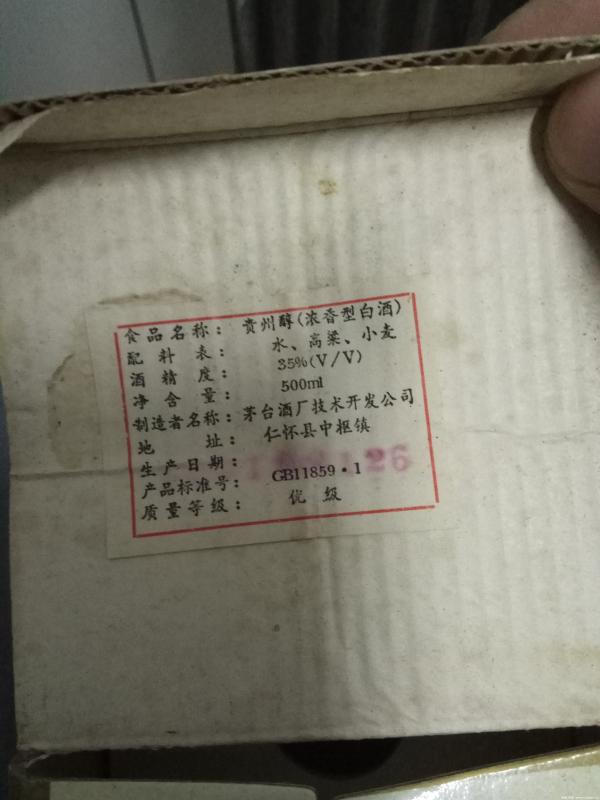 食品名称：贵州醇(浓香型白酒)
配料表：水、高粱、小麦
酒精度：35%(V/V)
净含量：500ml
制造者名称：茅台酒厂技术开发公司
地址：仁怀县中枢镇
生产日期：26
产品标准号：GB11859·1
质量等级：优级